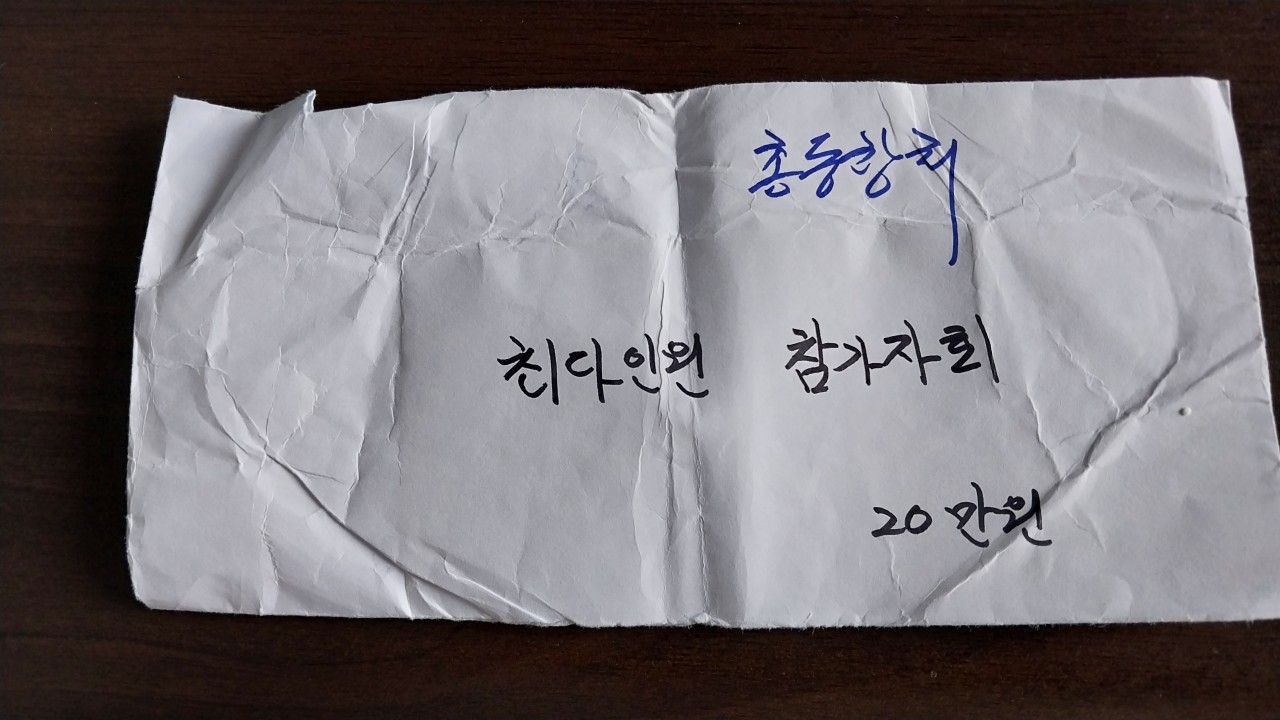 총동창회
최다인원 참가자회
20만원